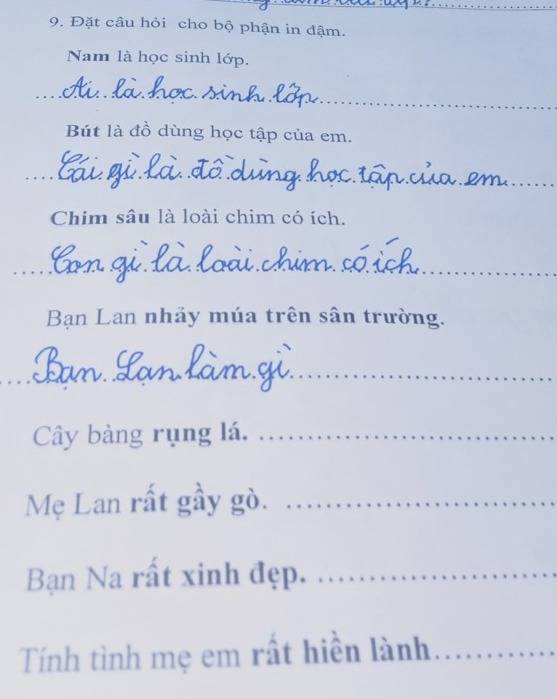 9. Đặt câu hỏi cho bộ phận in đậm.
Nam là học sinh lớp.
Ai là học sinh lớp
Bút là đồ dùng học tập của em.
Cái gì là đồ dùng học tập của em
Chim sâu là loài chim có ích.
Con gì là loài chim có ích
Bạn Lan nhảy múa trên sân trường.
Bạn Lan làm gì
Cây bàng rụng lá.
Mẹ Lan rất gầy gò.
Bạn Na rất xinh đẹp.
Tính tình mẹ em rất hiền lành